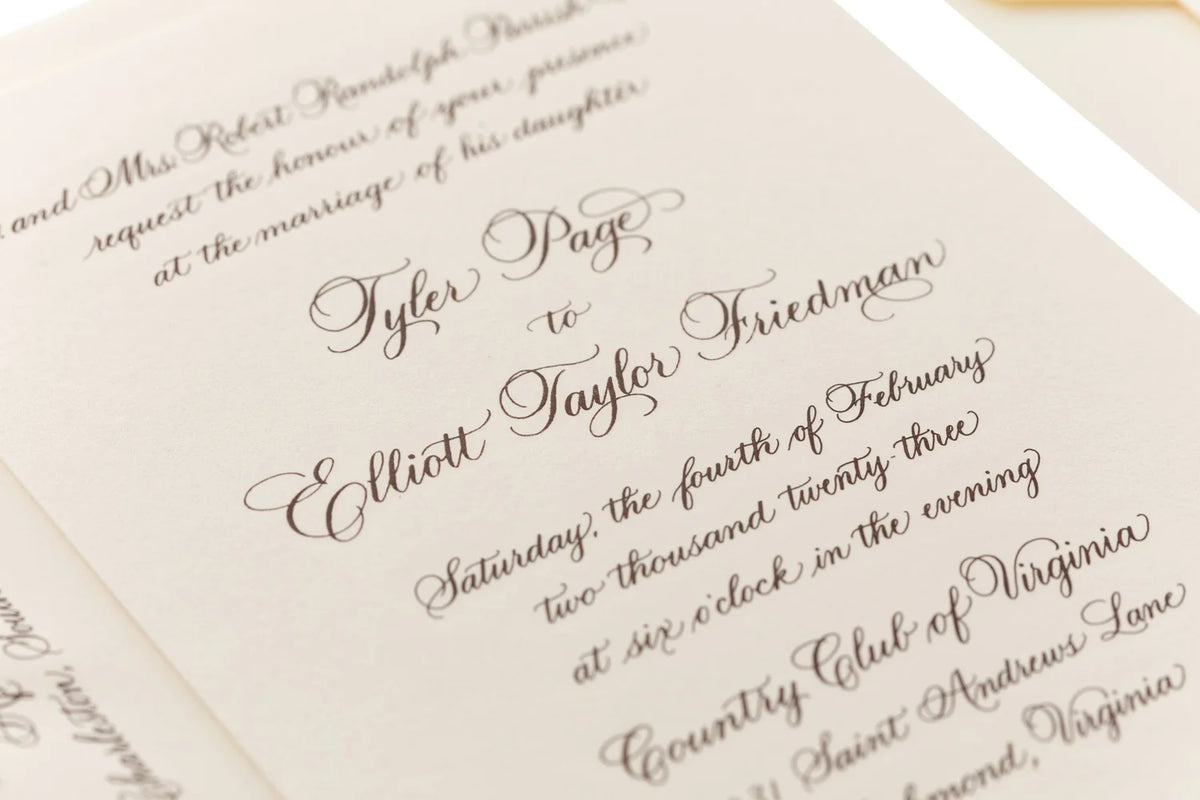 and Mrs. Robert Randolph Parrish
request the honour of your presence
at the marriage of his daughter
Tyler Page
to
Elliott Taylor Friedman
Saturday, the fourth of February
two thousand twenty-three
at six o'clock in the evening
Country Club of Virginia
31 Saint Andrews Lane
Virginia
Charleston,